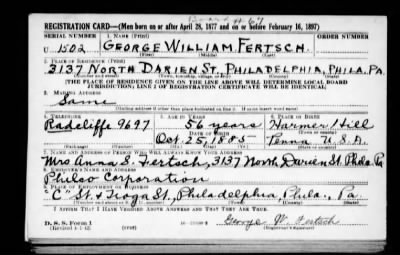 Board #67
REGISTRATION CARD—(Men born on or after April 28, 1877 and on or before February 16, 1897)
SERIAL NUMBER 1. NAME (Print) ORDER NUMBER
U 1502 GEORGE WILLIAM FERTSCH
2. PLACE OF RESIDENCE (Print)
3137 NORTH DARIEN ST. PHILADELPHIA, PHILA. PA.
[THE PLACE OF RESIDENCE GIVEN ON THE LINE ABOVE WILL DETERMINE LOCAL BOARD
JURISDICTION; LINE 2 OF REGISTRATION CERTIFICATE WILL BE IDENTICAL]
3. MAILING ADDRESS
Same
[Mailing address if other than place indicated on line 2. If same insert word same]
4. TELEPHONE 5. AGE IN YEARS 6. PLACE OF BIRTH
Radcliffe 9697 56 years Harmer Hill
DATE OF BIRTH
Oct. 25 1885 Penna U.S.A.
7. NAME AND ADDRESS OF PERSON WHO WILL ALWAYS KNOW YOUR ADDRESS
Mrs Anna S. Fertsch, 3137 North Darien St. Phila. Pa
8. EMPLOYER'S NAME AND ADDRESS
Philco Corporation
9. PLACE OF EMPLOYMENT OR BUSINESS
"C" St & Tioga St., Philadelphia, Phila., Pa.
I AFFIRM THAT I HAVE VERIFIED ABOVE ANSWERS AND THAT THEY ARE TRUE.
D. S. S. Form 1 George W. Fertsch
(Revised 4-1-42) (Registrant's signature)